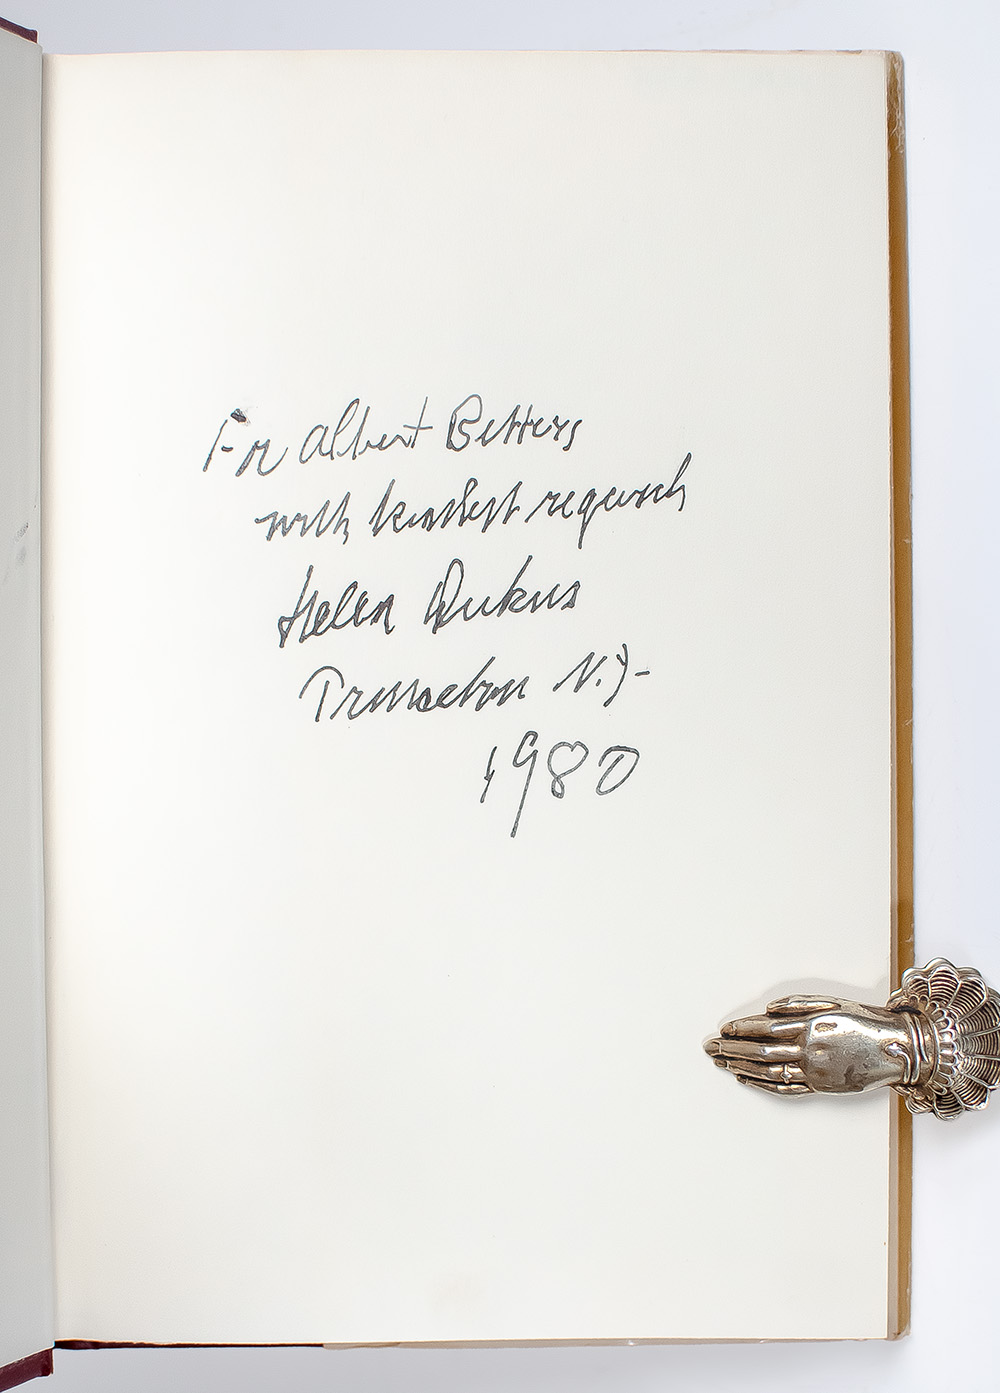 For Albert Betters
with kindest regards
Helen Dukas
Princeton N.J-
1980